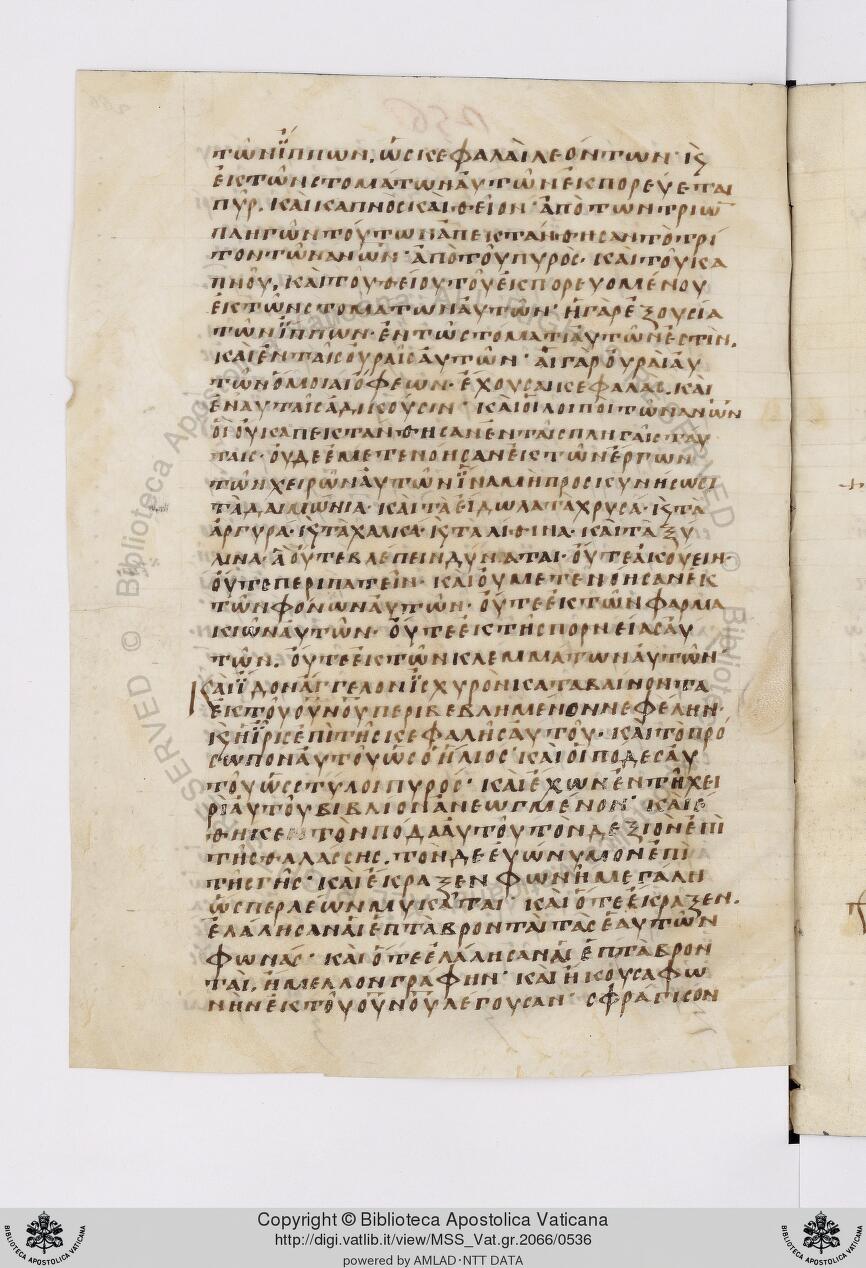 τῶν ἵππων, ὡς κεφαλαὶ λεόντων· κς
ἐκ τῶν στομάτων αὐτῶν ἐκπορεύεται
πῦρ. καὶ καπνὸς καὶ θεῖον· ἀπὸ τῶν τριω̅
πληγῶν τούτων ἀπεκτάνθησαν τὸ τρί
τον τῶν ἀνων· ἀπὸ τοῦ πυρὸς· καὶ τοῦ κα
πνοῦ, καὶ τοῦ θείου τοῦ ἐκπορευομένου
ἐκ τῶν στομάτων αὐτῶν· ἡ γὰρ ἐξουσία
τῶν ἵππων· ἐν τῶ στόματι αὐτῶν ἐστὶν.
καὶ ἐν ταῖς οὐραῖς αὐτῶν· αἱ γὰρ οὐραὶ αὐ
τῶν ὅμοιαι ὄφεων· ἔχουσαι κεφαλάς. καὶ
ἐν αὐταῖς ἀδικοῦσιν· καὶ οἱ λοιποὶ τῶν ἀνων
οἳ οὐκ ἀπεκτάνθησαν ἐν ταῖς πληγαῖς ταύ
ταις· οὐδε ἐμετενόησαν ἐκ τῶν ἔργων
τῶν χειρῶν αὐτῶν ἵνα μὴ προσκυνήσωσι
τὰ δαιμόνια· καὶ τὰ εἴδωλα τὰ χρυσᾶ· κς τὰ
ἀργυρᾶ· κς τὰ χαλκᾶ· κς τὰ λίθινα· καὶ τὰ ξύ
λινα· ἃ οὔτε βλέπειν δύναται· οὔτε ἀκούειν·
οὔτε περιπατεῖν· καὶ οὐ μετενόησαν ἐκ
τῶν φόνων αὐτῶν· οὔτε ἐκ τῶν φαρμα
κιῶν αὐτῶν· οὔτε ἐκ τῆς πορνείας αὐ
τῶν, οὔτε ἐκ τῶν κλεμμάτων αὐτῶν·
Καὶ ἴδον ἄγγελον ἰσχυρὸν καταβαίνοντα
ἐκ τοῦ οὐνοῦ περιβεβλημένον νεφέλην·
κς ἡ ἶρις ἐπὶ τῆς κεφαλῆς αὐτοῦ· καὶ τὸ πρό
σωπον αὐτοῦ ὡς ὁ ἥλιος· καὶ οἱ πόδες αὐ
τοῦ ὡς στύλοι πυρός· καὶ ἔχων ἐν τῆ χει
ρὶ αὐτοῦ βιβλίον ἀνεωγμένον· καὶ ἔ
θηκεν τὸν πόδα αὐτοῦ τὸν δεξιὸν ἐπὶ
τῆς θαλάσσης. τὸν δε εὐώνυμον ἐπὶ
τῆς γῆς· καὶ ἔκραξεν φωνῆ μεγάλη
ὥσπερ λέων μυκᾶται· καὶ ὅτε ἔκραξεν.
ἐλάλησαν αἱ ἑπτὰ βρονταὶ τὰς ἑαυτῶν
φωνάς· καὶ ὅτε ἐλάλησαν αἱ ἑπτὰ βρον
ταὶ, ἤμελλον γράφην· καὶ ἤκουσα φω
νὴν ἐκ τοῦ οὐνοῦ λέγουσαν· σφράγισον
Copyright © Biblioteca Apostolica Vaticana
http://digi.vatlib.it/view/MSS_Vat.gr.2066/0536
powered by AMLAD·NTT DATA